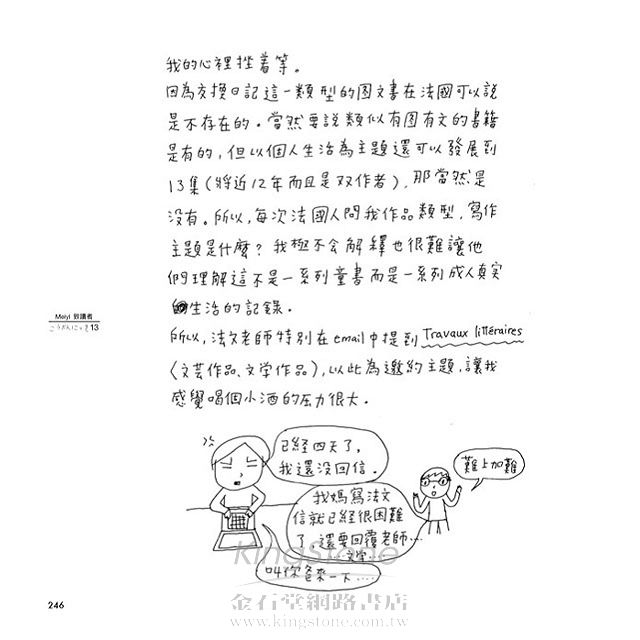 我的心裡挫著等。
因為交換日記這一類型的图文書在法國可以說
是不存在的。當然要說類似有图有文的書籍
是有的，但以個人生活為主題還可以發展到
13集(將近12年而且是双作者)，那當然是
没有。所以，每次法國人問我作品類型，寫作
主題是什麼？我極不會解釋也很難讓他
們理解這不是一系列童書而是一系列成人真实
生活的記錄。
Meiyi 致讀者
こうかんにっき13
所以，法文老師特別在email中提到Travaux littéraires
(文芸作品、文学作品)，以此為邀約主題，讓我
感覺喝個小酒的压力很大。
已經四天了，
我還没回信。
難上加難
我媽寫法文
信就已經很困難
了，還要回覆老師…
文学
叫你爸來一下…
KingStone
金石堂網路書店
www.kingstone.com.tw
246